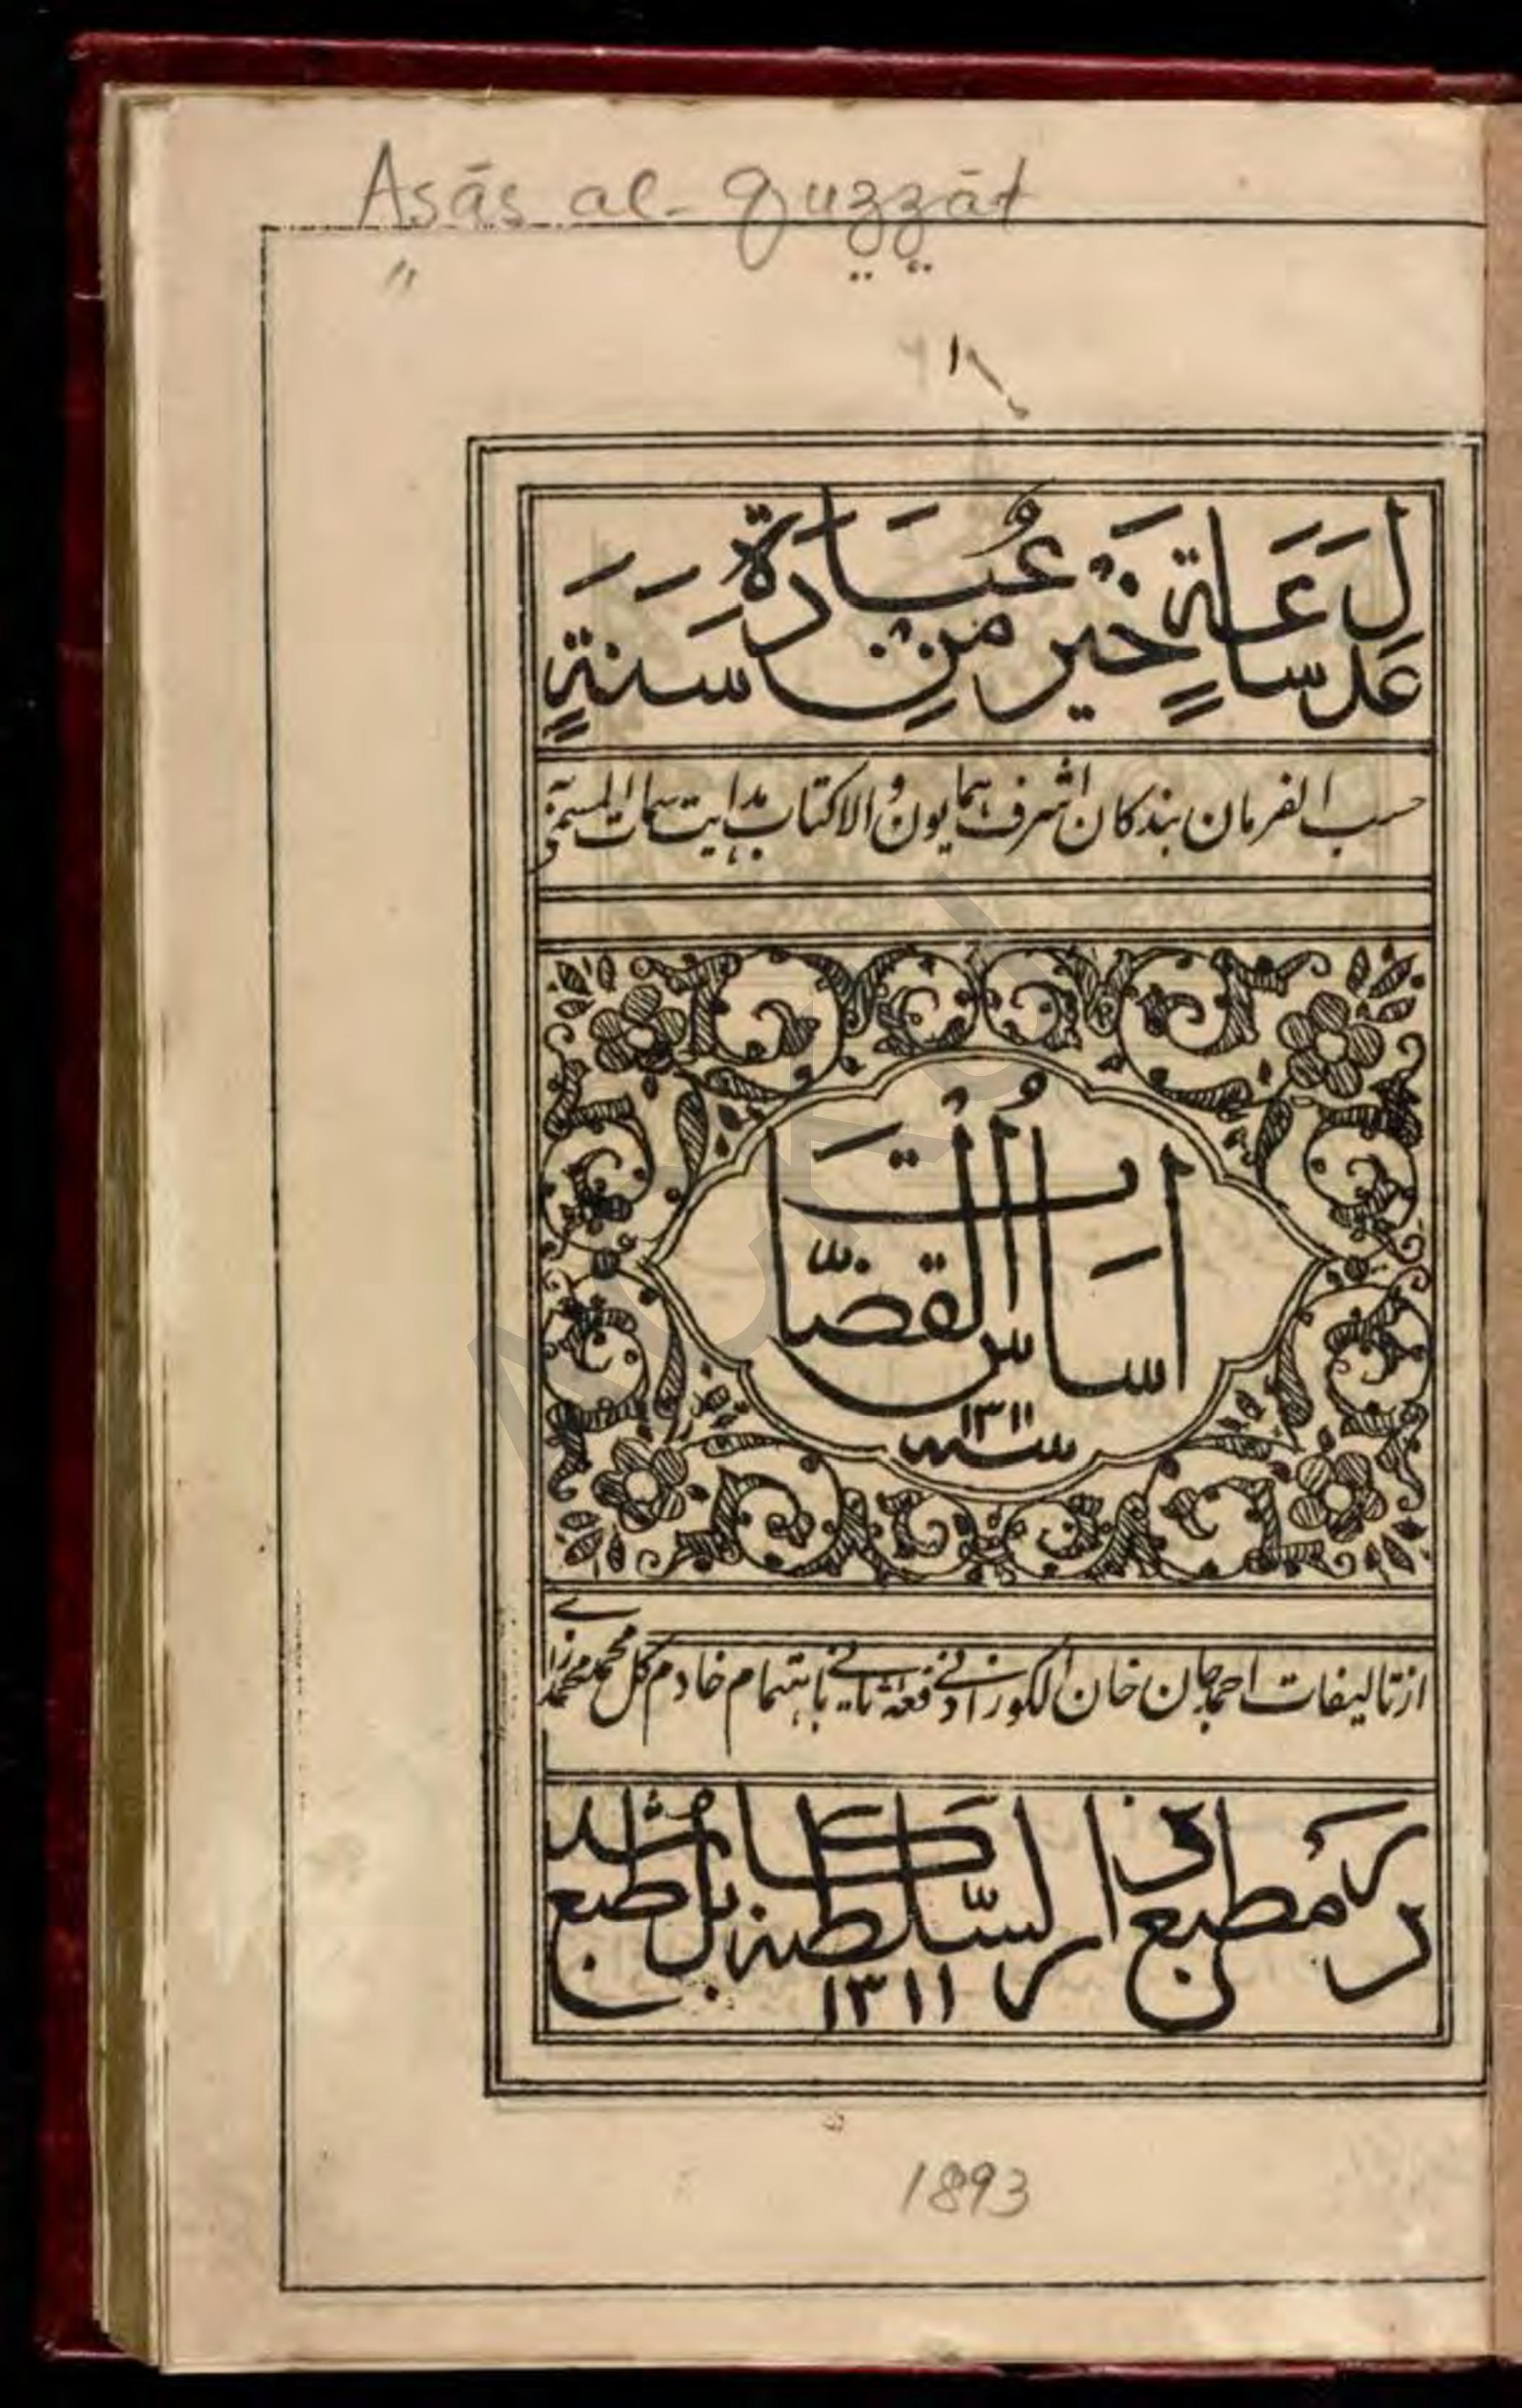 Asās al-quzzāt
عَدلُ سَاعَةٍ خَيرٌ مِن عُبَادَةِ سَنَةٍ
حسب الفرمان بندكان اشرف همايون والا كتاب هدايت سمات المسمى
اساسُ القضّات
سنه ١٣١١
از تاليفات احمد جان خان الكوزائى دفعه ثانى باهتمام خادم كل محمد محمدزائے
در مطبع دار السلطنه كابل طبع شد
١٣١١
1893